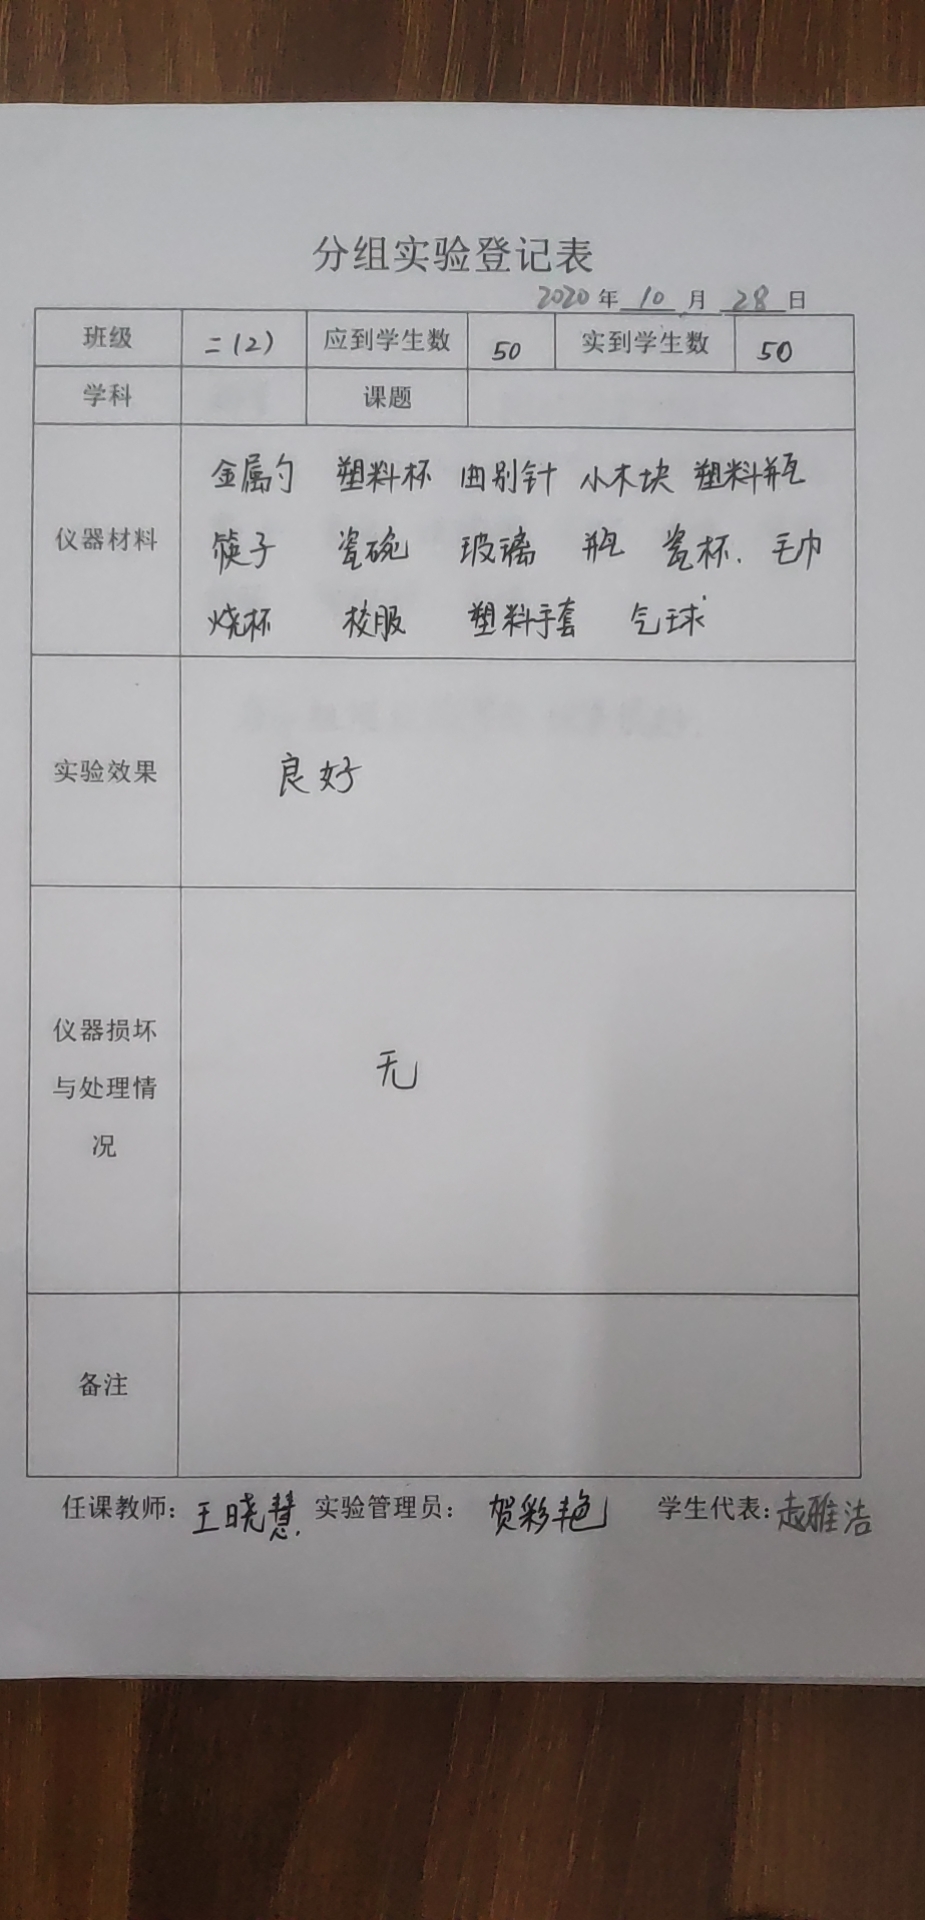 分组实验登记表
2020年 10 月 28 日
班级 二(2) 应到学生数 50 实到学生数 50
学科 课题
仪器材料
金属勺 塑料杯 曲别针 小木块 塑料瓶
筷子 瓷碗 玻璃 瓶 瓷杯. 毛巾
烧杯 校服 塑料手套 气球
实验效果 良好
仪器损坏
与处理情
况
无
备注
任课教师: 王晓慧. 实验管理员: 贺彩艳 学生代表: 赵雅洁